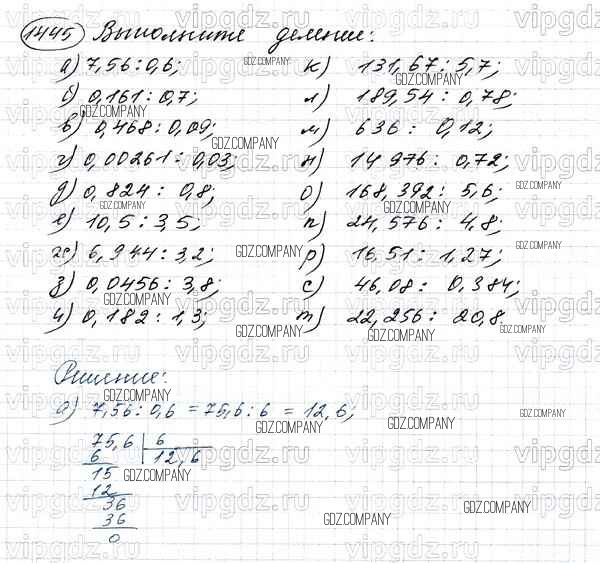 1445 Выполните деление:
а) 7,56 : 0,6; к) 131,67 : 5,7;
б) 0,161 : 0,7; л) 189,54 : 0,78;
в) 0,468 : 0,09; м) 636 : 0,12;
г) 0,00261 : 0,03; н) 14 976 : 0,72;
д) 0,824 : 0,8; о) 168,392 : 5,6;
е) 10,5 : 3,5; п) 24,576 : 4,8;
ж) 6,944 : 3,2; р) 16,51 : 1,27;
з) 0,0456 : 3,8; с) 46,08 : 0,384;
и) 0,182 : 1,3; т) 22,256 : 20,8
Решение:
а) 7,56 : 0,6 = 75,6 : 6 = 12,6;
75,6 | 6
6 12,6
15
12
36
36
0